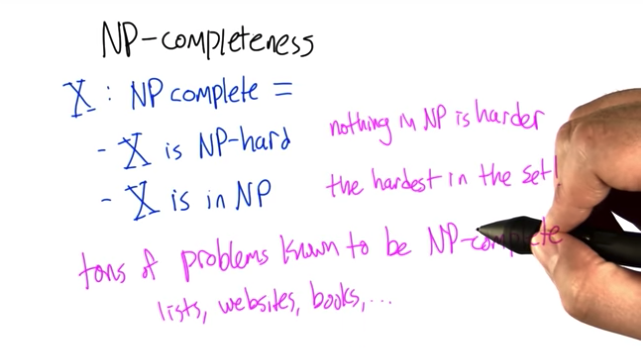 NP-completeness
X : NP complete =
- X is NP-hard
nothing in NP is harder
- X is in NP
the hardest in the set!
tons of problems known to be NP-complete
lists, websites, books,...